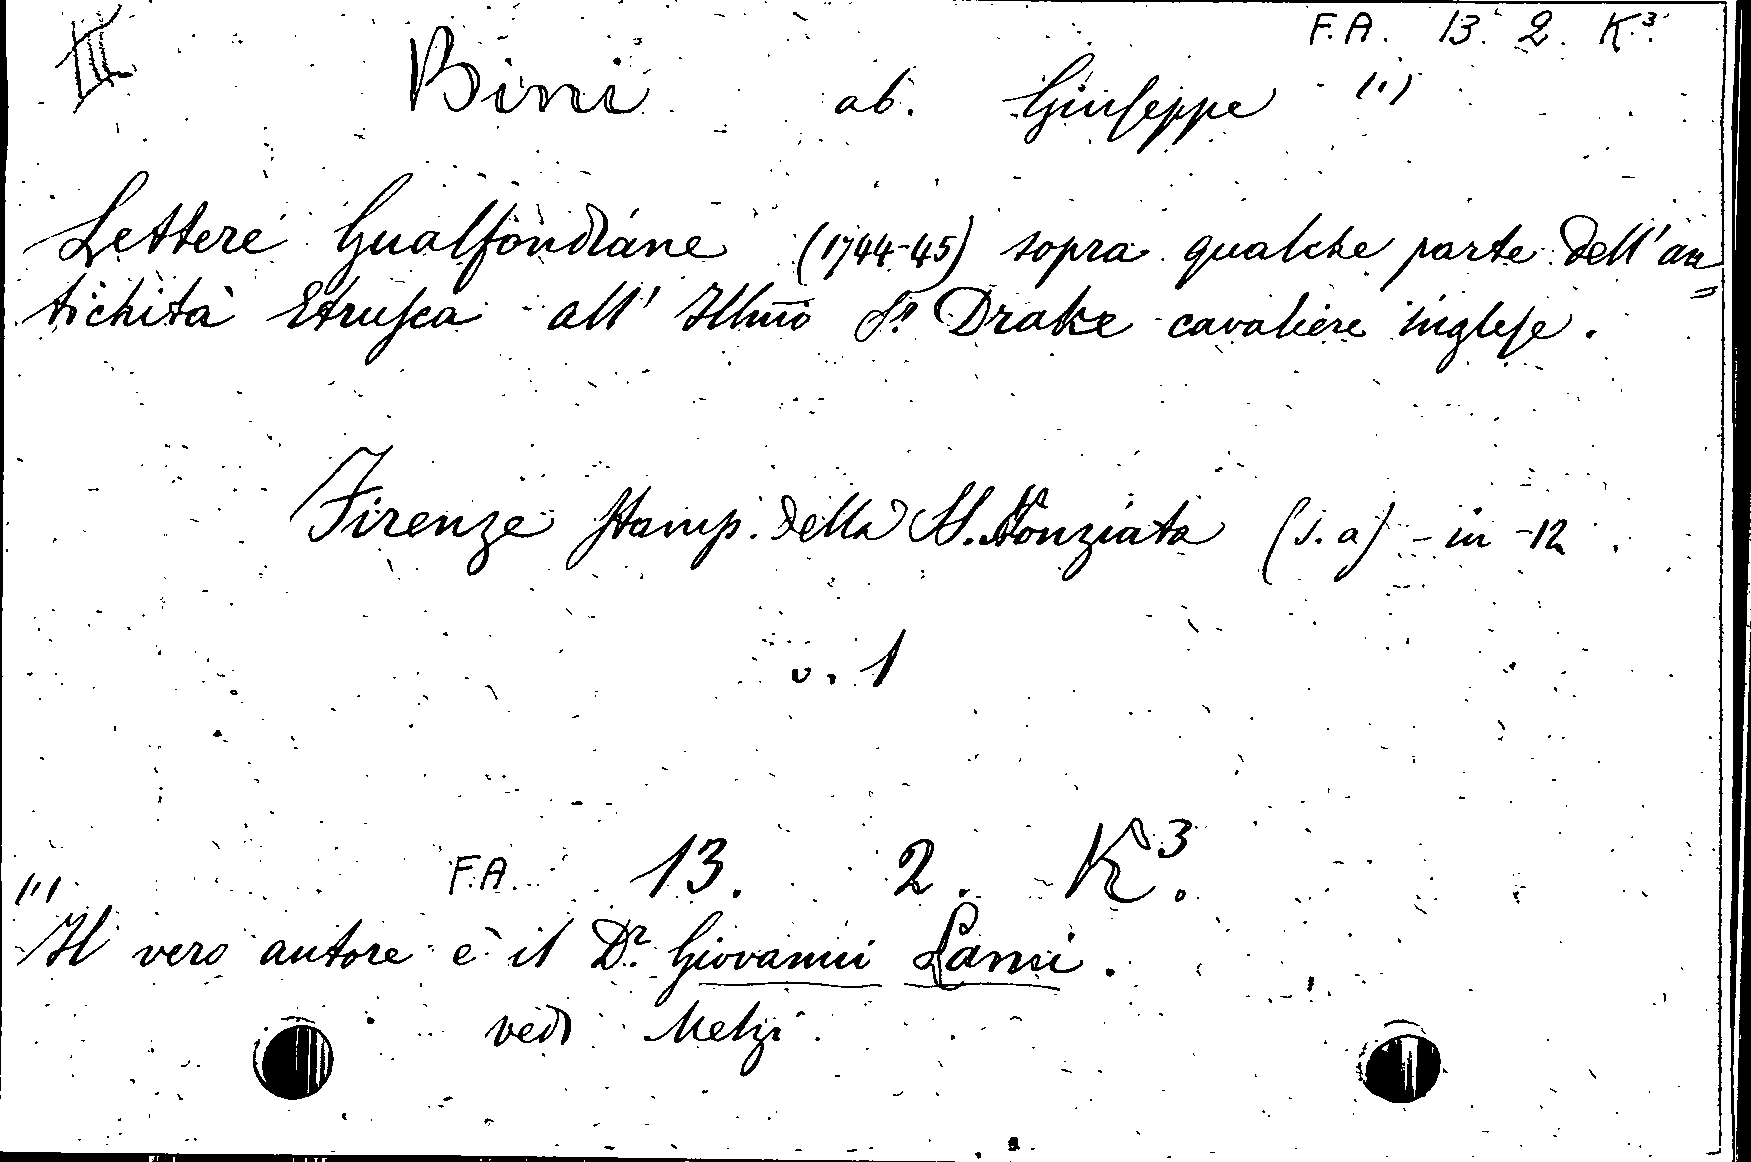 III
F.A. 13. 2. K³.
Bini ab. Giuseppe (1)
Lettere Gualfondiane (1744-45) sopra qualche parte dell'an=
tichità Etrusca all' Illmo Sr Drake cavaliere inglese.
Firenze Stamp. della SS. Nonziata (s.a) - in -12.
v. 1
F.A. 13. 2. K³.
(1)
Il vero autore è il Dr. Giovanni Lami.
vedi Melzi.